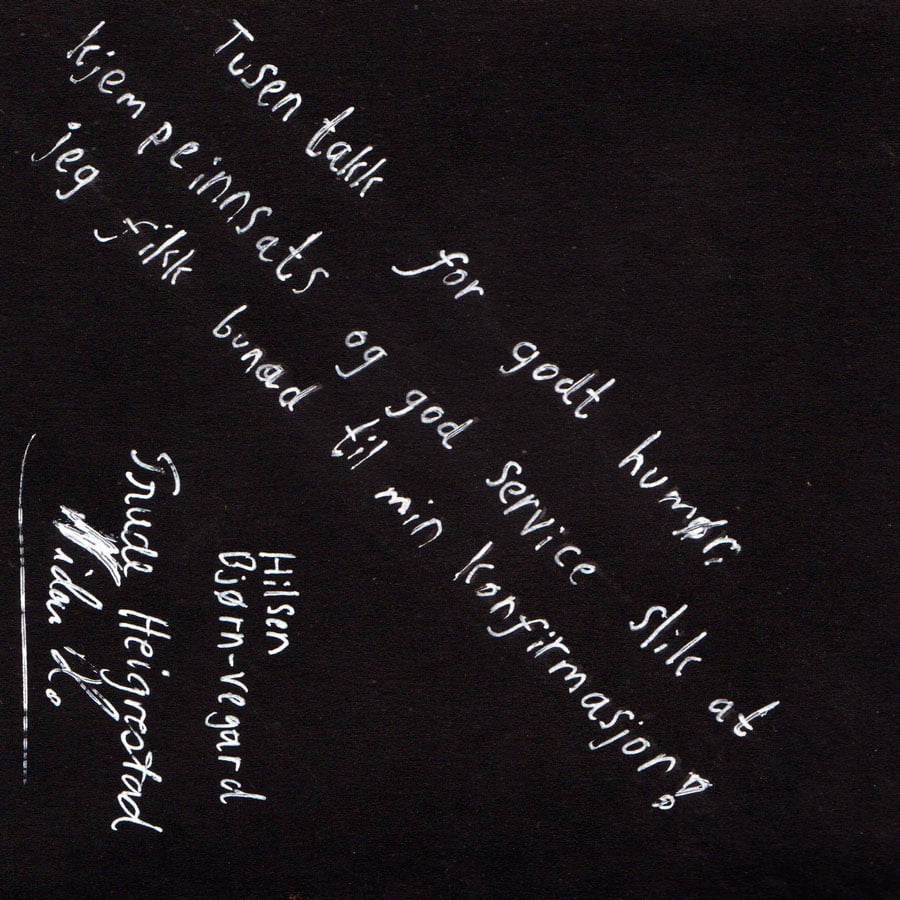 Tusen takk for godt humør,
kjempeinnsats og god service slik at
jeg fikk bunad til min konfirmasjon!
Hilsen
Bjørn-vegard
Trude Heigrestad